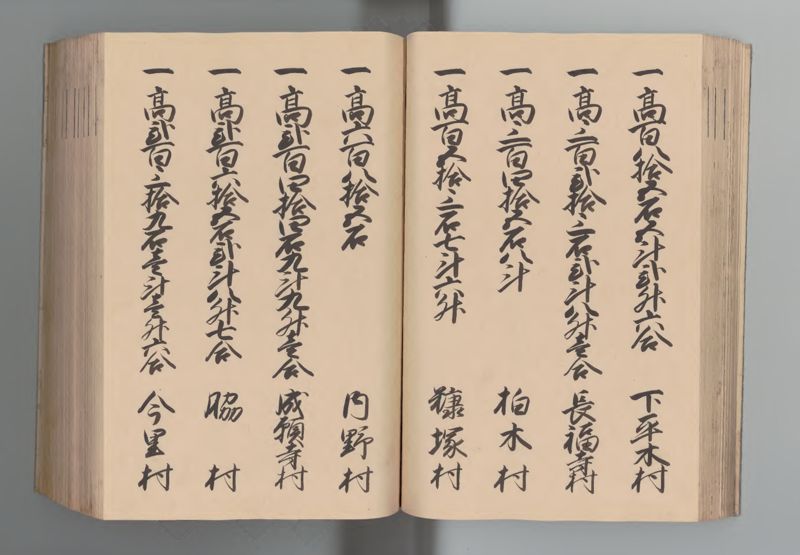 一高百八拾五石五斗弐升六合 下平木村
一高三百弐拾三石弐斗八升壱合 長福寺村
一高三百四拾五石八斗 柏木村
一高百五拾三石七斗六升 糠塚村
一高六百八拾五石 内野村
一高弐百四拾四石九斗九升壱合 成願寺村
一高弐百六拾五石弐斗八升七合 脇村
一高弐百三拾九石壱斗壱升六合 今里村